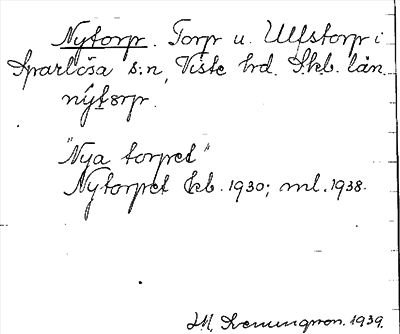 Nytorp. Torp u. Ulfstorp i
Sparlösa s:n, Viste hrd. Skb. län.
nýtɔrp.
"Nya torpet"
Nytorpet kb. 1930; ml. 1938.
1939.